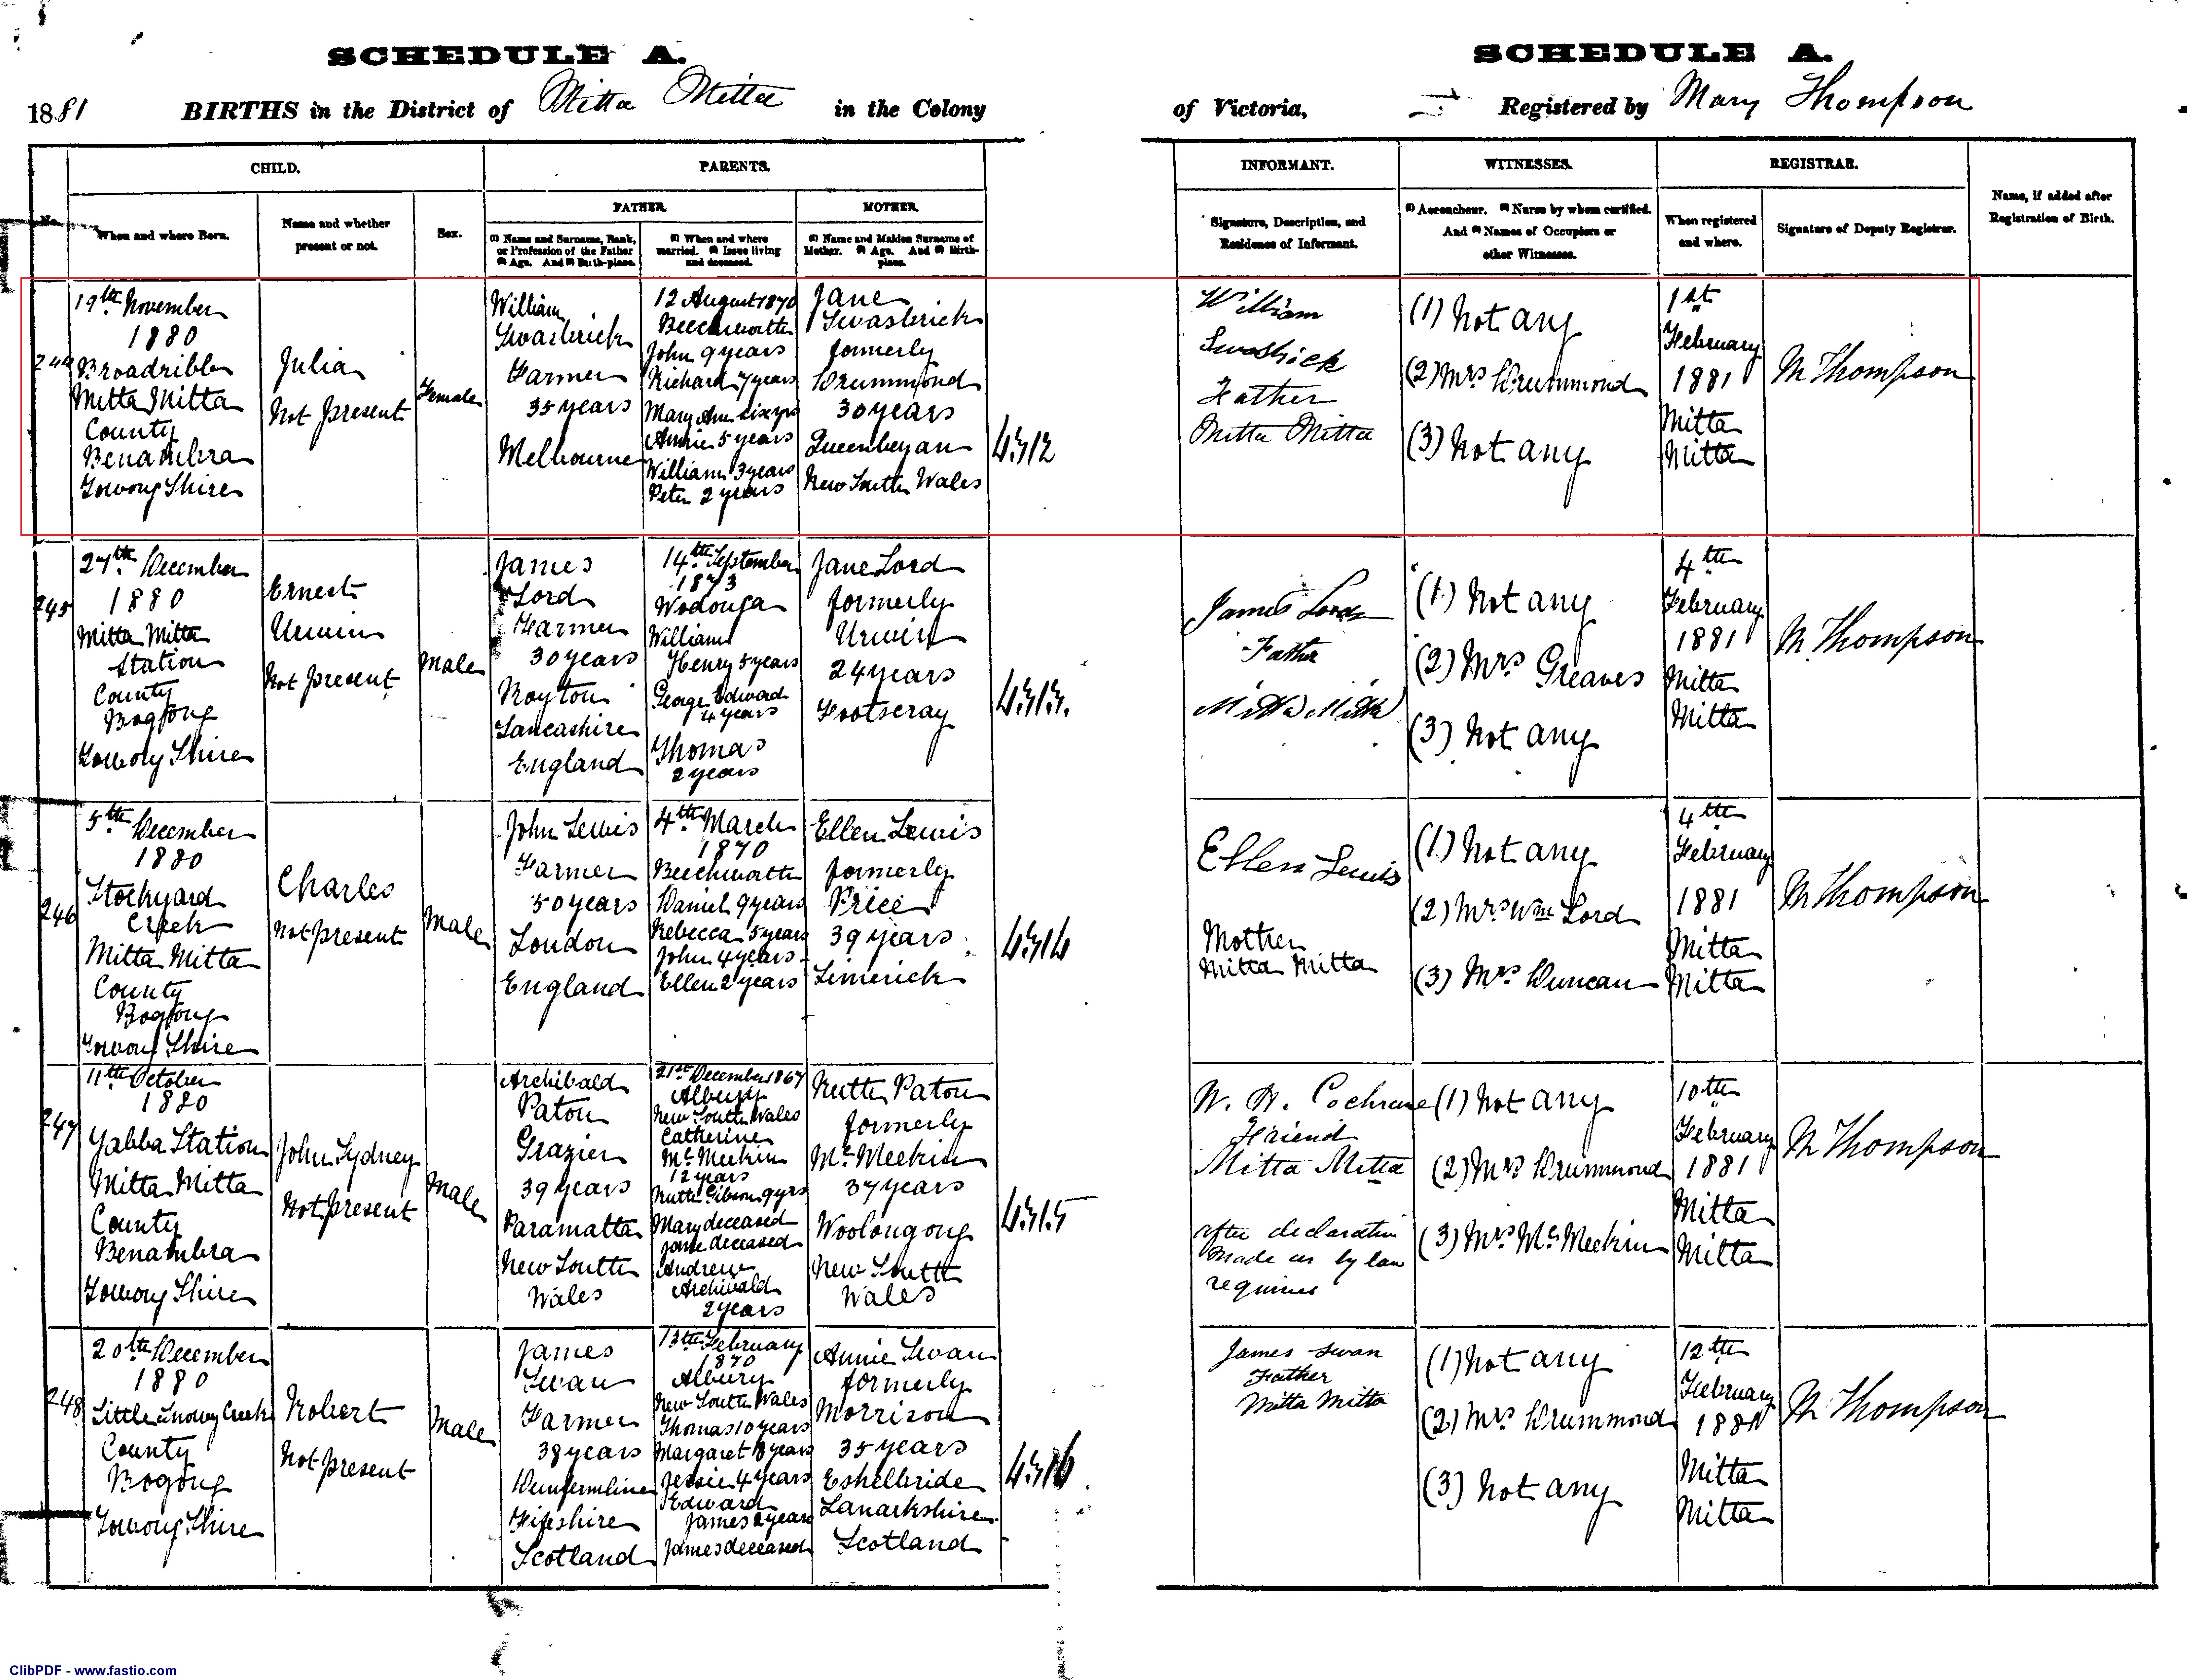 SCHEDULE A.
SCHEDULE A.
1881 BIRTHS in the District of Mitta Mitta in the Colony
of Victoria, Registered by Mary Thompson
CHILD.
PARENTS.
INFORMANT.
WITNESSES.
REGISTRAR.
Name, if added after
Registration of Birth.
No.
When and where Born.
Name and whether
present or not.
Sex.
FATHER.
MOTHER.
(1) Name and Surname, Rank,
or Profession of the Father
(2) Age. And (3) Birth-place.
(1) When and where
married. (2) Issue living
and deceased.
(1) Name and Maiden Surname of
Mother. (2) Age. And (3) Birth-
place.
Signature, Description, and
Residence of Informant.
(1) Accoucheur. (2) Nurse by whom certified.
And (3) Names of Occupiers or
other Witnesses.
When registered
and where.
Signature of Deputy Registrar.
244
19th November
1880
Broadribbs
Mitta Mitta
County
Benambra
Towong Shire
Julia
Not Present
Female
William
Swasbrick
Farmer
35 years
Melbourne
12 August 1870
Beechworth
John 9 years
Richard 7 years
Mary Ann six yrs
Annie 5 years
William 3 years
Peter 2 years
Jane
Swasbrick
formerly
Drummond
30 years
Queenbeyan
New South Wales
4312
William
Swasbrick
Father
Mitta Mitta
(1) Not any
(2) Mrs Drummond
(3) Not any
1st
February
1881
Mitta
Mitta
M Thompson
245
27th December
1880
Mitta Mitta
Station
County
Bogong
Towong Shire
Ernest
Unwin
Not Present
Male
James
Lord
Farmer
30 years
Royton
Lancashire
England
14th September
1873
Wodonga
William
Henry 5 years
George Edward
4 years
Thomas
2 years
Jane Lord
formerly
Unwin
24 years
Footscray
4313.
James Lord
Father
Mitta Mitta
(1) Not any
(2) Mrs Greaves
(3) Not any
4th
February
1881
Mitta
Mitta
M Thompson
246
5th December
1880
Stockyard
Creek
Mitta Mitta
County
Bogong
Towong Shire
Charles
Not Present
Male
John Lewis
Farmer
50 years
London
England
4th March
1870
Beechworth
Daniel 9 years
Rebecca 5 years
John 4 years
Ellen 2 years
Ellen Lewis
formerly
Price
39 years
Limerick
4314
Ellen Lewis
Mother
Mitta Mitta
(1) Not any
(2) Mrs Wm Lord
(3) Mrs Duncan
4th
February
1881
Mitta
Mitta
M Thompson
247
11th October
1880
Yabba Station
Mitta Mitta
County
Benambra
Towong Shire
John Sydney
Not Present
Male
Archibald
Paton
Grazier
39 years
Paramatta
New South
Wales
21st December 1867
Albury
New South Wales
Catherine
Mc Meekin
12 years
Ruth Gibson 9 yrs
Mary deceased
Jane deceased
Andrew
Archibald
2 years
Ruth Paton
formerly
Mc Meekin
37 years
Woolongong
New South
Wales
4315
W. H. Cochrane
Friend
Mitta Mitta
after declaration
made as by law
requires
(1) Not any
(2) Mrs Drummond
(3) Mrs Mc Meekin
10th
February
1881
Mitta
Mitta
M Thompson
248
20th December
1880
Little Snowy Creek
County
Bogong
Towong Shire
Robert
Not Present
Male
James
Swan
Farmer
38 years
Dunfermline
Fifeshire
Scotland
13th February
1870
Albury
New South Wales
Thomas 10 years
Margaret 8 years
Jessie 4 years
Edward
James 2 years
James deceased
Annie Swan
formerly
Morrison
35 years
Eshelbride
Lanarkshire
Scotland
4316
James Swan
Father
Mitta Mitta
(1) Not any
(2) Mrs Drummond
(3) Not any
12th
February
1881
Mitta
Mitta
M Thompson
ClibPDF - www.fastio.com